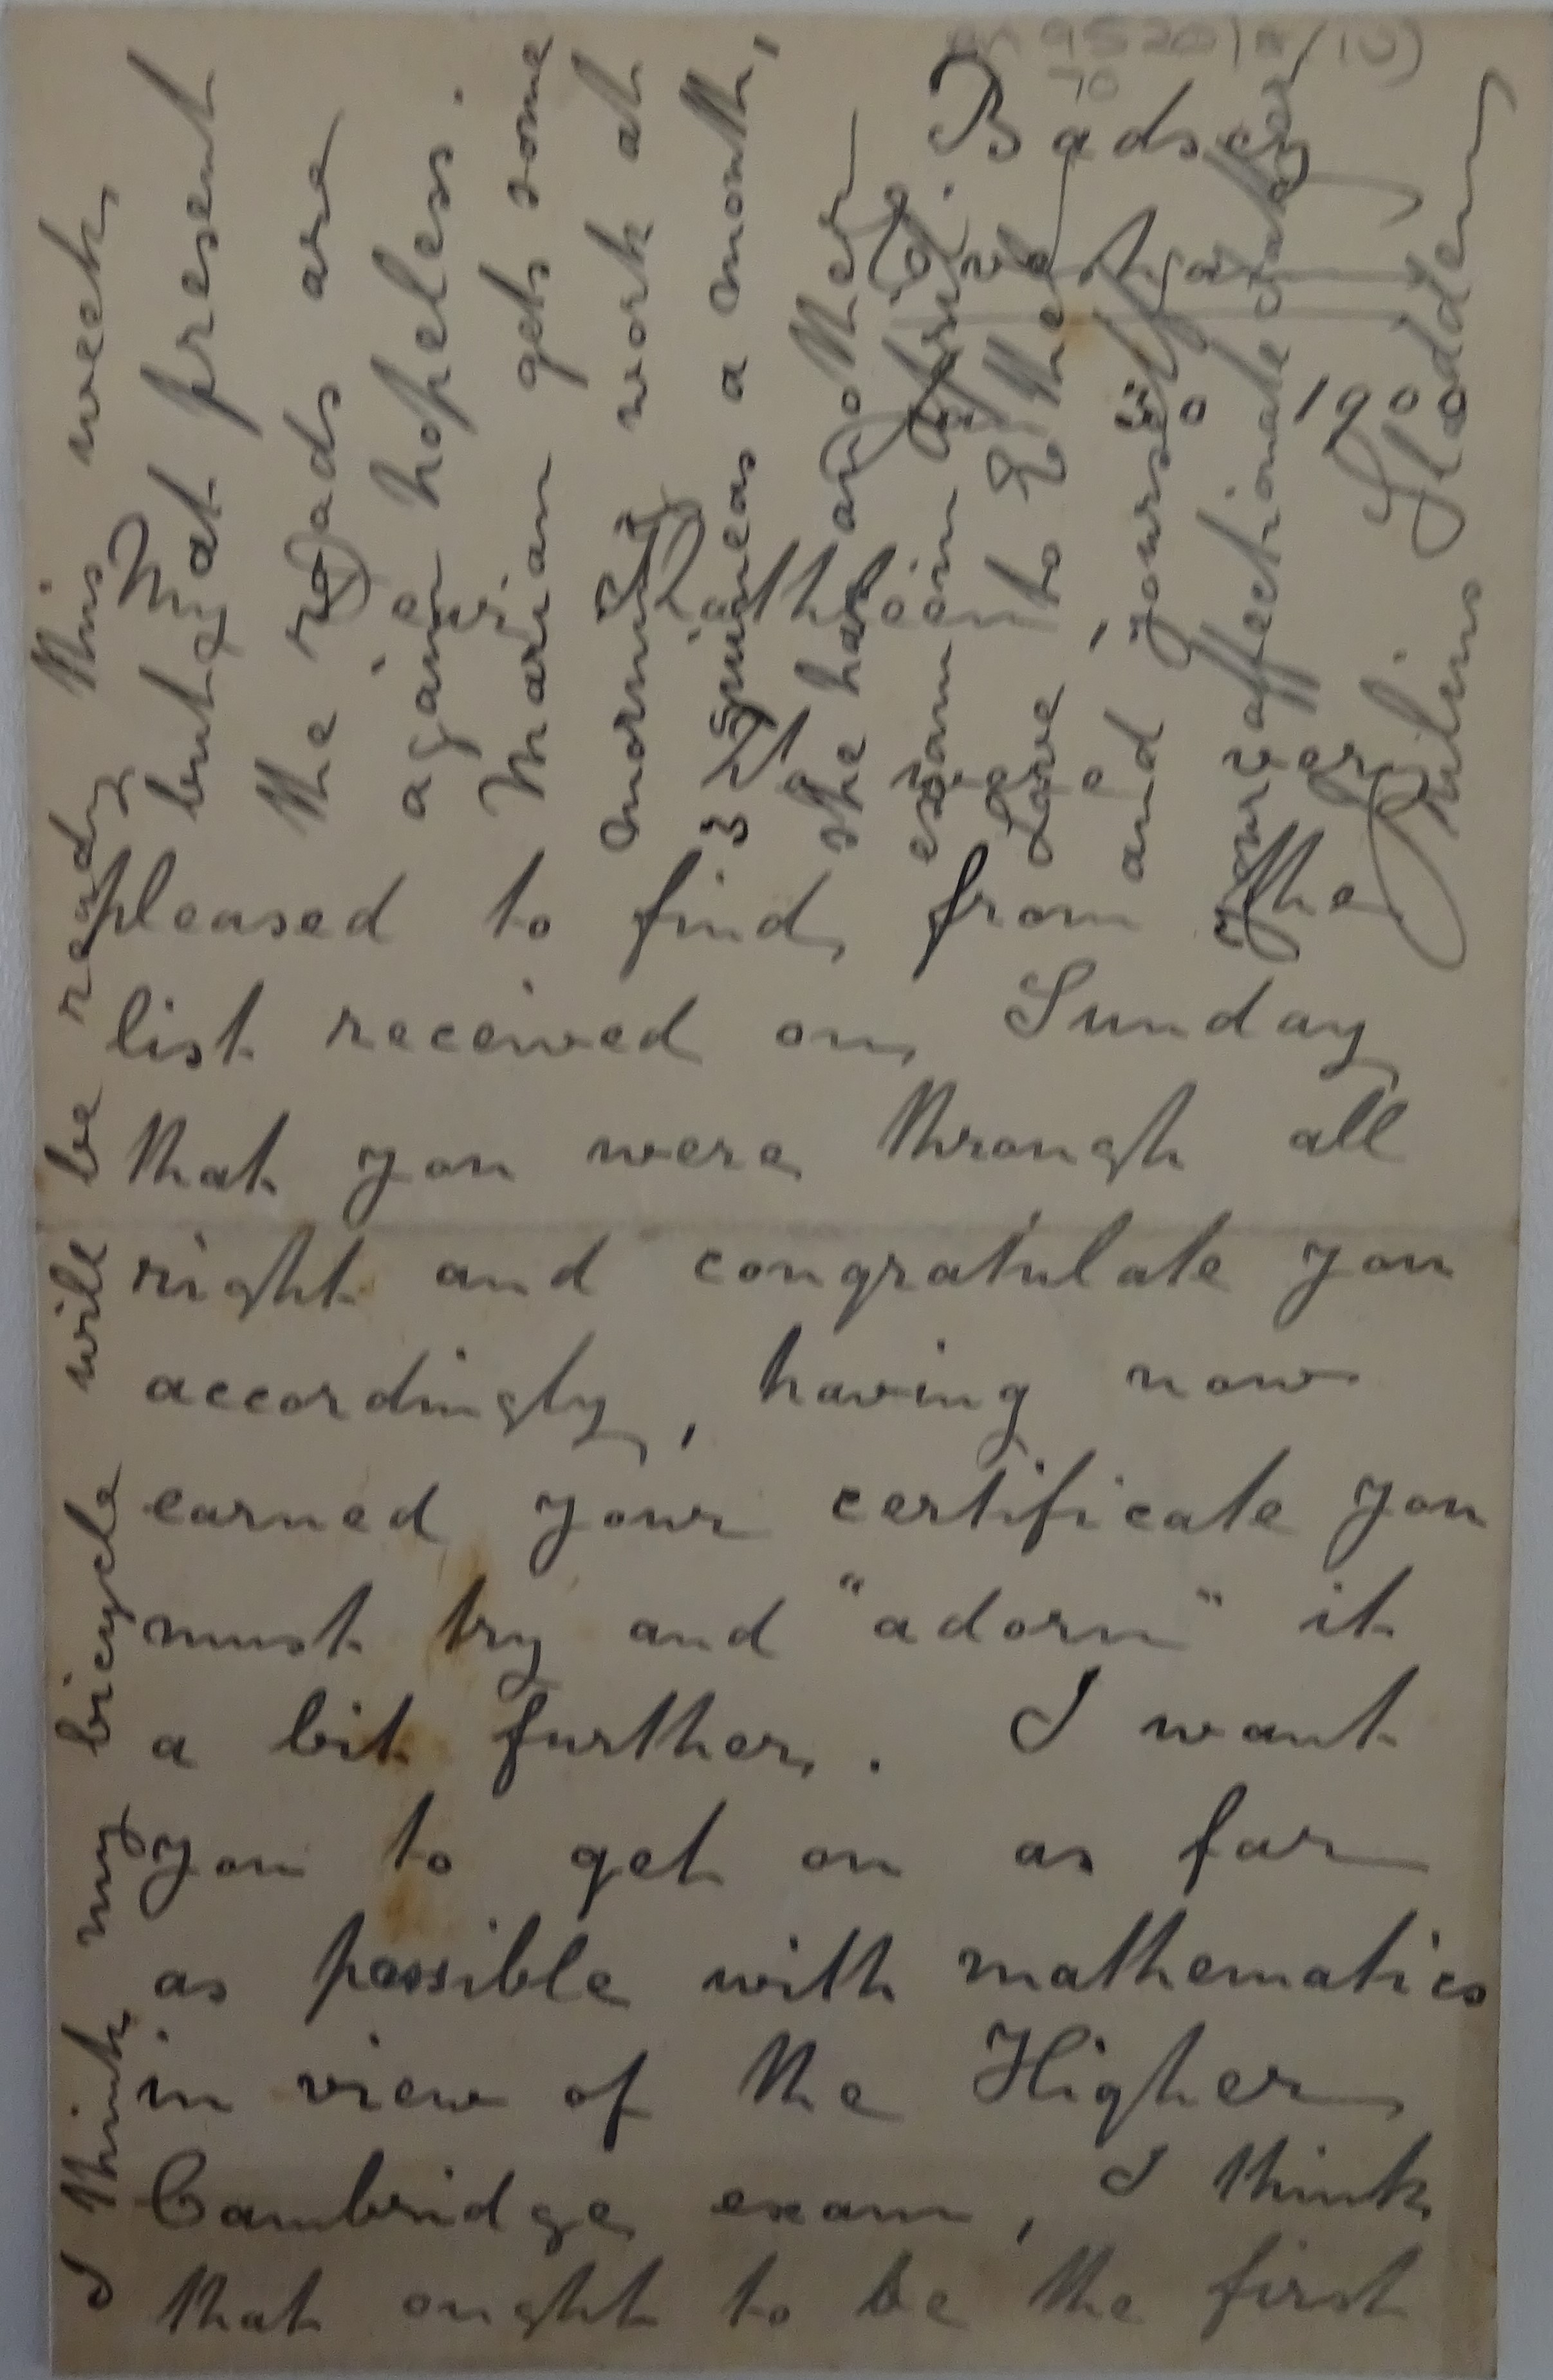 Badsey
1900
My Dear Kathleen,
very
pleased to find from the
list received on Sunday
that you were through all
right and congratulate you
accordingly, having now
earned your certificate you
must try and "adorn" it
a bit further. I want
you to get on as far
as possible with mathematics
in view of the Higher
Cambridge exam, I think
that ought to be the first
I think my bicycle will be ready this week
but at present
the roads are
again hopeless.
Marian gets some
morning work at
3 guineas a month,
she has another
exam in
Love to Ethel
and yourself
your affectionate father
Julius Sladden